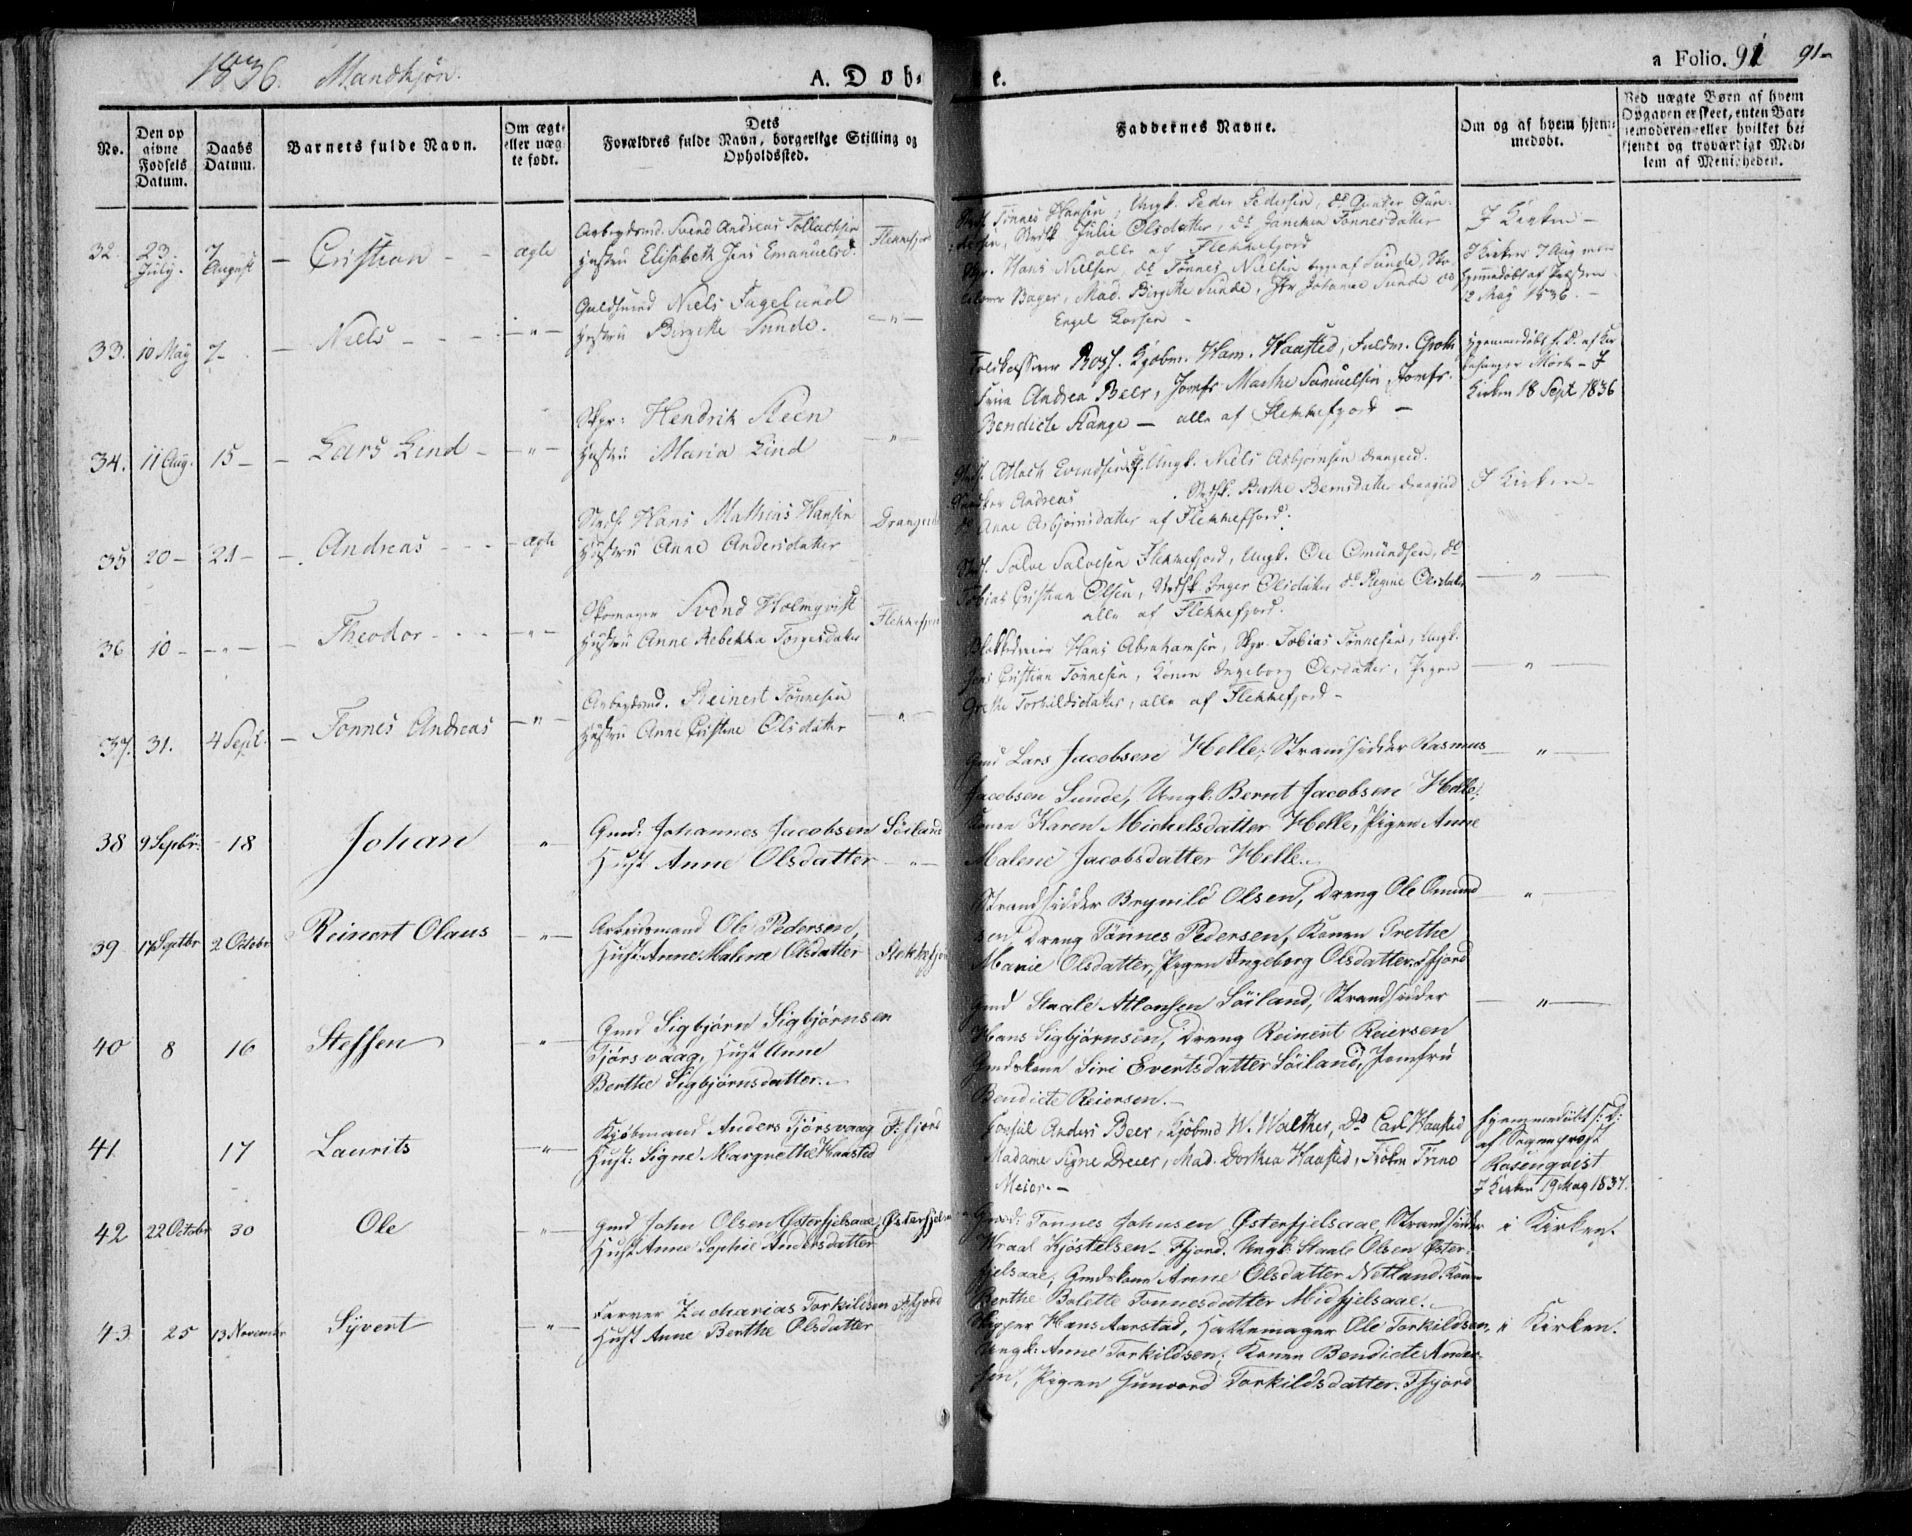 1836. Mandkjøn.
A. Døb-
e.
a Folio. 91 91-
No.
Den op
givne
Fødsels
Datum.
Daabs
Datum.
Barnets fulde Navn.
Om ægte
eller uæg-
te født.
Dets
Forældres fulde Navn, borgerlige Stilling og
Opholdssted.
Faddernes Navne.
Om og af hvem hjem-
medøbt.
Ved uægte Børn af hvem
Opgaven er skeet, enten Bar-
nemoderen eller hvilket be-
kjendt og troværdigt Med-
lem af Menigheden.
32. 23 July. 7 August - Cristian - - ægte
Arbeydsmd. Svend Andreas
Hustru Elisabeth Jens Emanuelsd. Flekkefjord
Tønnes Hansen, Ungk. Peder Pedersen, do Gunder Gun-
Julie Olsdatter, do Tønnesdatter
alle af Flekkefjord
I Kirken -
33. 10 May 7- - Niels - - - " -
Guldsmed Niels Fageland
Hustru Birgitte Sunde. - " -
Hans Nielsen, do Tønnes Nielsen begge af Sunde,
Bager, Mad. Birgitte Sunde, Johanne Sunde og
Engel Larsen -
I Kirken 7 Aug men
hjemmedøbt af Præsten
May 1836. -
34. 11 Aug. 15 - - Lars Lind - - " -
Skpr: Hendrik Steen
Hustru Maria Lind - " -
Ross. Kjøbm. Haasted, Fuldm. Groth
Andrea Beer, Jomfr Marthe Samuelsen, Jomfr.
Bendicte Stange - alle af Flekkefjord -
Hjemmedøbt s. D. af
Mørch - I
Kirken 18 Sept 1836
35 20 - 21 - - Andreas - - - ægte
Hans Mathias Hansen
Hustru Anne Andersdatter
Atlach Evindsen, Ungk. Niels Asbjørnsen
Andreas Berthe Berntsdatter
do Anne Asbjørnsdatter af Flekkefjord.
I Kirken -
36 10 - - " - - Theodor - - - - " -
Skomager Svend Holmqvist
Hustru Anne Rebekka Torgersdatter Flekkefjord
Salve Salvesen Flekkefjord, Ungk. Ole Omundsen, do
Tobias Cristian Olsen, Inger Olsdatter do Regine Olsdatter
alle af Flekkefjord.
- " -
37. 31. 4 Sept. - Tønnes Andreas - " -
Arbeydsmd. Reinert Tønnesen
Hustru Anne Cristine Olsdatter - " -
Hans Abrahamsen, Skpr Tobias Tønnesen, Ungk.
Jens Cristian Tønnesen, Konen Ingeborg Olsdatter, Pigen
Grethe Torkildsdatter, alle af Flekkefjord -
- " -
38 9 Septbr. 18 Johan "
Gmd: Johannes Jacobsen Søiland
Hust Anne Olsdatter - " -
Gmd Lars Jacobsen Helle, Strandsidder Rasmus
Jacobsen Sunde, Ungk. Bernt Jacobsen Helle,
Konen Karen Michelsdatter Helle, Pigen Anne
Malene Jacobsdatter Helle.
- " -
39 17 Septbr 2 Octobr Reinert Olaus - " -
Arbeidsmand Ole Pedersen,
Hust: Anne Malene Olsdatter Flekkefjord
Strandsidder Brynild Olsen, Dreng Ole Omund
sen, Dreng Tønnes Pedersen, Konen Grethe
Marie Olsdatter, Pigen Ingeborg Olsdatter. Ffjord
- " -
40 8 16 Steffen - " -
Gmd Sigbjørn Sigbjørnsen
Tjørsvaag, Hust Anne
Berthe Sigbjørnsdatter.
Gmd Staale Atlaksen Søiland, Strandsidder
Hans Sigbjørnsen, Dreng Reinert Reiersen
Gmdskone Siri Evertsdatter Søiland, Jomfru
Bendicte Reiersen.
- " -
41 17 Laurits - " -
Kjøbmand Anders Tjørsvaag F:fjord
Hust: Signe Margrethe Haasted
Consul Anders Beer, Kjøbmd W. Walther, Do Carl Haasted
Madame Signe Dreier, Mad. Dorthea Haasted, Trine
Meier. -
Hjemmedøbt s: D:
af Sognepræst
Rosenqvist
I Kirken 19 May 1837.
42 22 Octobr 30 Ole - " -
Gmd John Olsen Østerfjelsaae, Østerfjelsaae
Hust Anne Sophie Andersdatter
Gmd: Tønnes Johnsen Østerfjelsaae, Strandsidder
Kjøstelsen - Ffjord. Ungk: Staale Olsen Øster-
fjelsaae, Gmdskone Anne Olsdatter Netland, Konen
Berthe Bolette Tønnesdatter Midfjelsaae.
i Kirken.
43. 25 13 November Syvert - " -
Farver Zacharias Torkildsen Ffjord
Hust Anne Berthe Olsdatter
Skipper Hans Aarstad, Hattemager Ole Torkildsen,
Ungk: Anne Torkildsen, Konen Bendicte Ander-
sen, Pigen Gunvord Torkildsdatter. Ffjord
i Kirken.